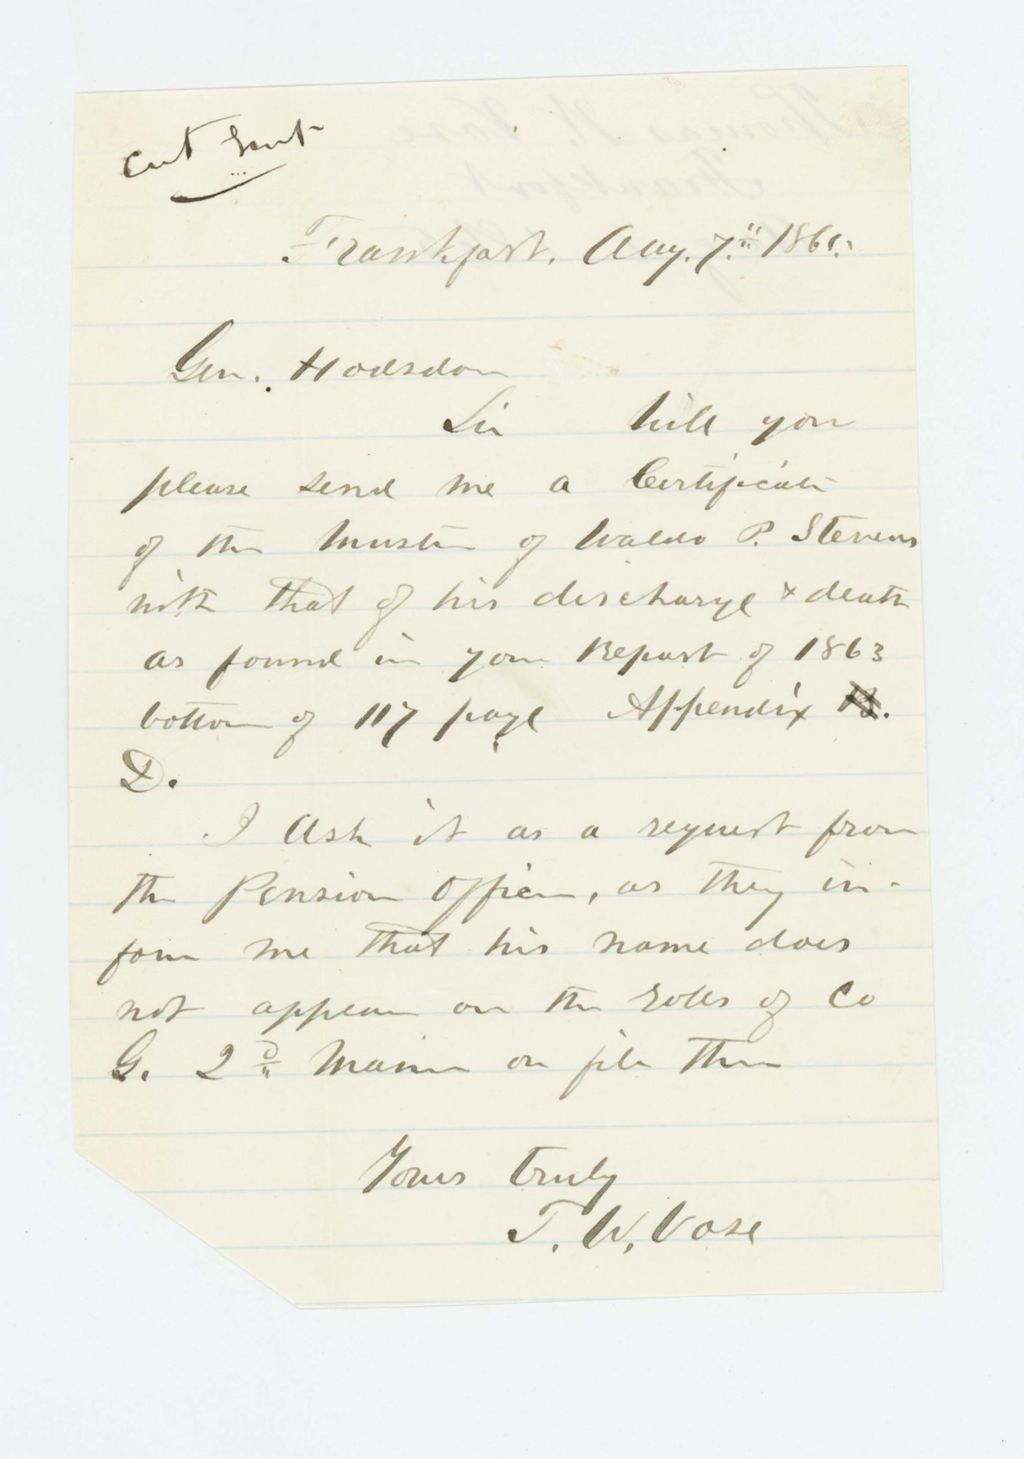 Cert Sent
Frankfort, Aug. 7th 186
Gen. Hodsdon
Sir Will you
please send me a Certificate
of the Muster of Waldo P. Stevens
with that of his discharge & death
as found in your Report of 1863
bottom of 117 page Appendix
D.
I Ask it as a request from
the Pension Office, as they in-
form me that his name does
not appear on the Rolls of Co
G. 2D Maine on file there
Yours truly
T. W. Vose